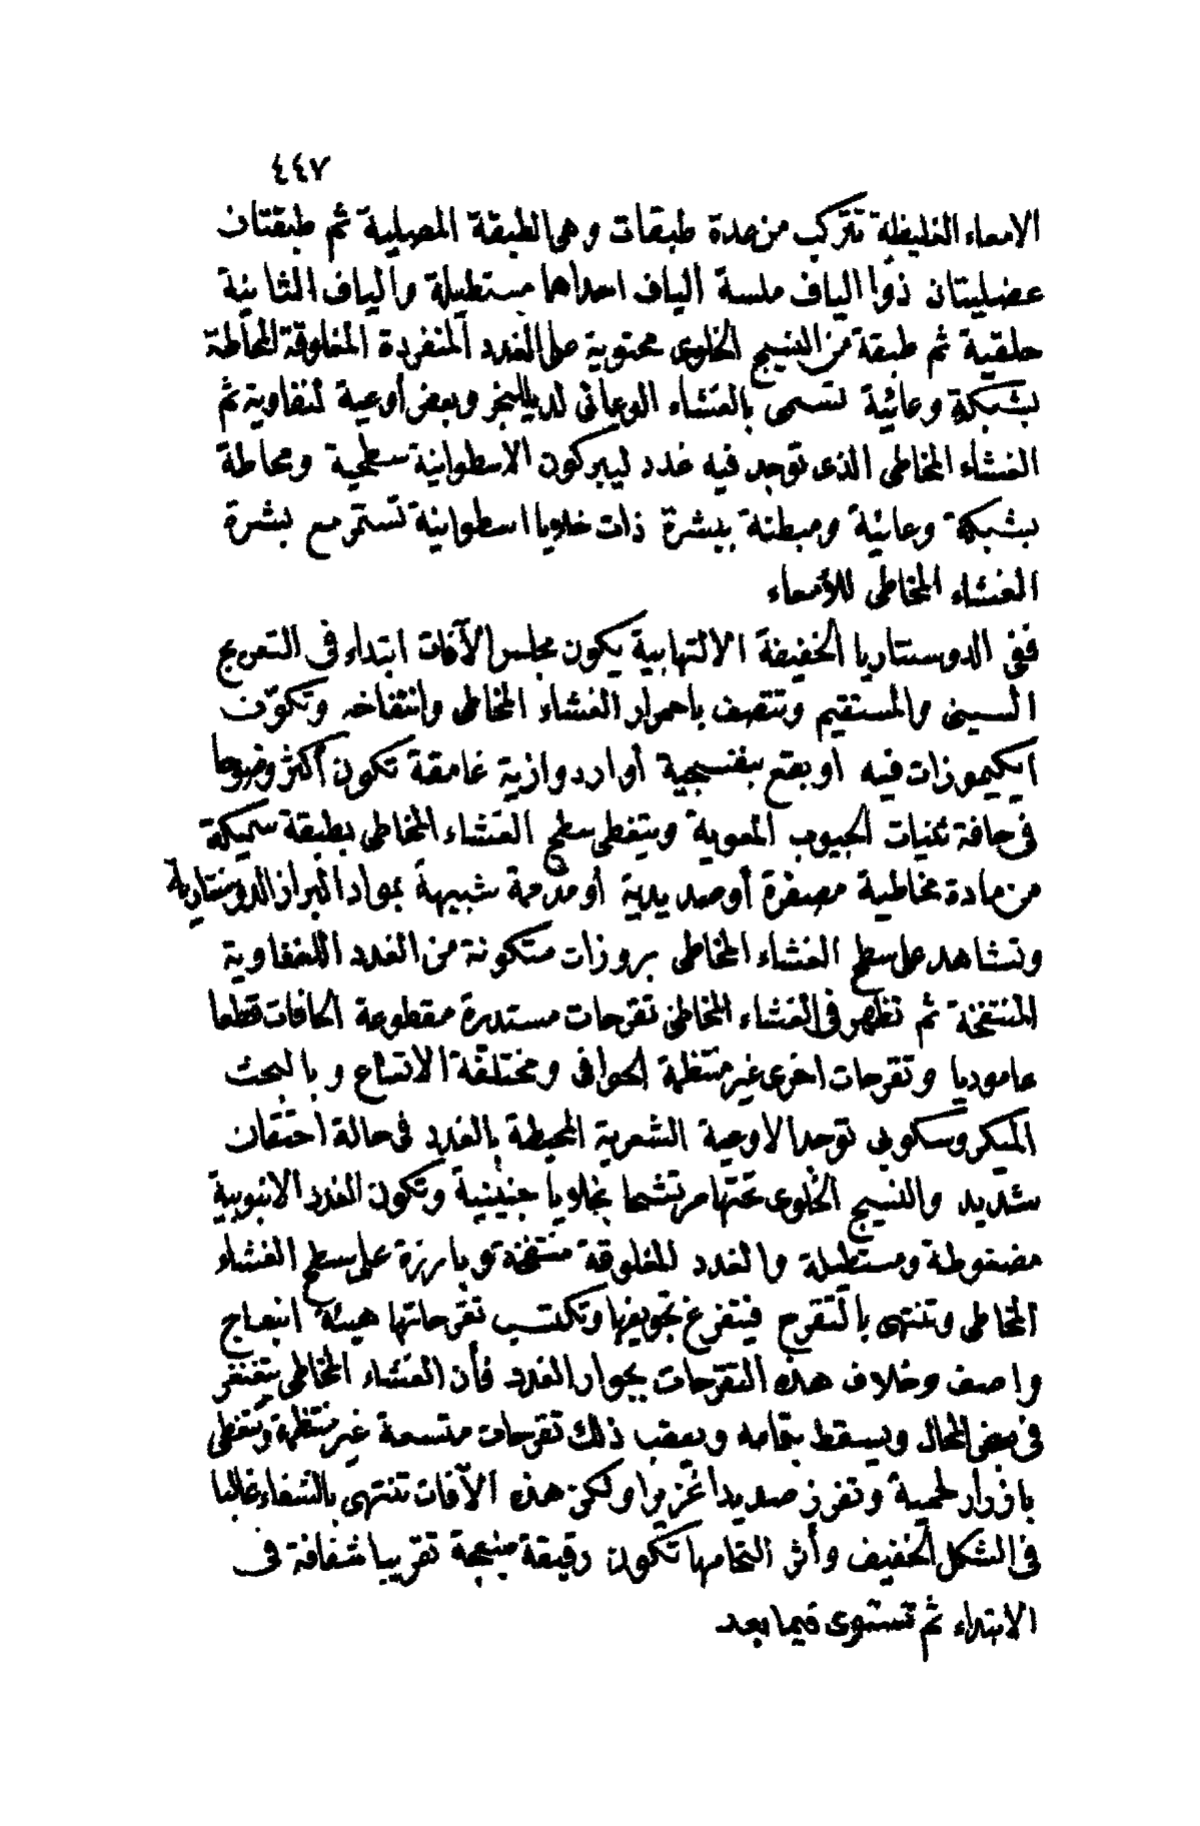 ٤٤٧
الامعاء الغليظة تتركب من عدة طبقات وهى الطبقة المصلية ثم طبقتان
عضليتان ذوا الياف ملسة الياف احداهما مستطيلة والياف الثانية
حلقية ثم طبقة من النسيج الخلوى محتوية على الغدد المنفردة المغلوقة المحاطة
بشبكة وعائية تسمى بالغشاء الوعائى لدبلينجر وبعض أوعية لنفاوية ثم
الغشاء المخاطى الذى توجد فيه غدد ليبركون الاسطوانية سطحية ومحاطة
بشبكة وعائية ومبطنة ببشرة ذات خلايا اسطوانية تستمر مع بشرة
الغشاء المخاطى للأمعاء
ففى الدوسنتاريا الخفيفة الالتهابية يكون مجلس الآفات ابتداء فى التعريج
السينى والمستقيم وتتصف باحمرار الغشاء المخاطى وانتفاخه وتكوّن
ايكيموزات فيه او بقع بنفسجية أو اردوازية غامقة تكون أكثر وضوحا
فى حافة ثنيات الجيوب المعوية ويتغطى سطح الغشاء المخاطى بطبقة سميكة
من مادة مخاطية مصفرة أو صديدية أو مدممة شبيهة بمواد البراز الدوسنتارية
وتشاهد على سطح الغشاء المخاطى بروزات متكونة من الغدد اللنفاوية
المنتفخة ثم تظهر فى الغشاء المخاطى تقرحات مستديرة مقطوعة الحافات قطعا
عاموديا وتقرحات اخرى غير منتظمة الحوافى ومختلفة الاتساع وبالبحث
الميكروسكوبى توجد الاوعية الشعرية المحيطة بالغدد فى حالة احتقان
شديد والنسيج الخلوى تحتها مرتشحا بخلايا جنينية وتكون الغدد الانبوبية
مضغوطة ومستطيلة والغدد المغلوقة منتفخة وبارزة على سطح الغشاء
المخاطى وتنتهى بالتقرح فيتفرغ تجويفها وتكتسب تقرحاتها هيئة انبعاج
واصف وخلاف هذه التقرحات بجوار الغدد فأن الغشاء المخاطى يتغنغر
فى بعض المحال ويسقط بتمامه ويعقب ذلك تقرحات متسعة غير منتظمة وتتغطى
بازرار لحمية وتفرز صديدا غزيرا ولكن هذه الآفات تنتهى بالشفاء غالبا
فى الشكل الخفيف وأثر التحامها تكون رقيقة منبعجة تقريبا شفافة فى
الابتداء ثم تستوى فيما بعد